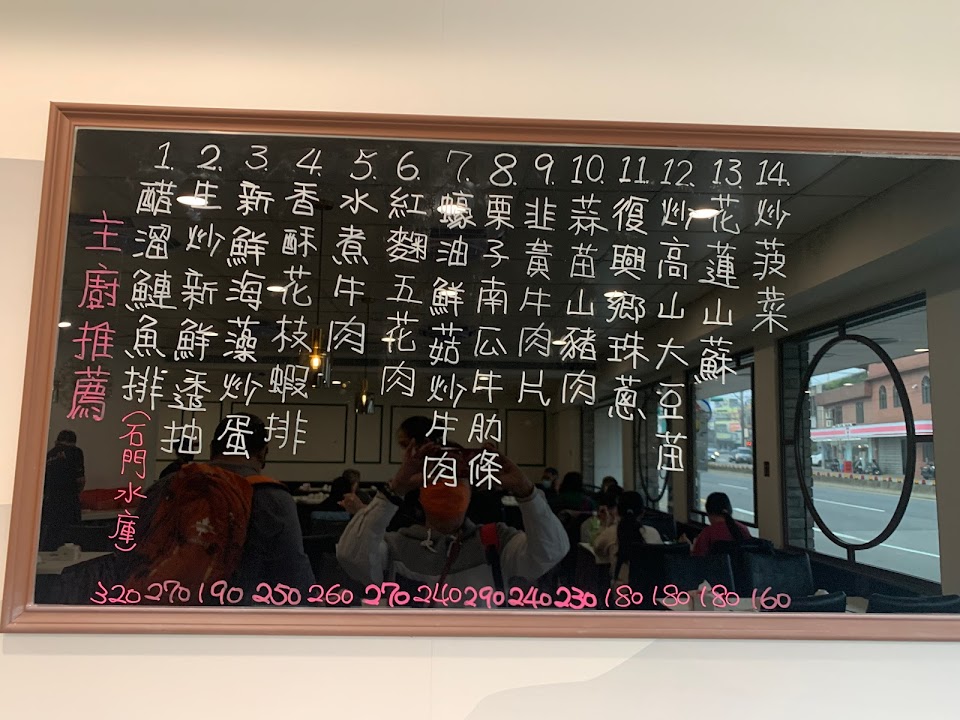 主廚推薦
1. 醋溜鰱魚排(石門水庫) 320
2. 生炒新鮮透抽 270
3. 新鮮海藻炒蛋 190
4. 香酥花枝蝦排 250
5. 水煮牛肉 260
6. 紅麴五花肉 270
7. 蠔油鮮菇炒牛肉 240
8. 栗子南瓜牛肋條 290
9. 韭黃牛肉片 240
10. 蒜苗山豬肉 230
11. 復興鄉珠蔥 180
12. 炒高山大豆苗 180
13. 花蓮山蘇 180
14. 炒菠菜 160